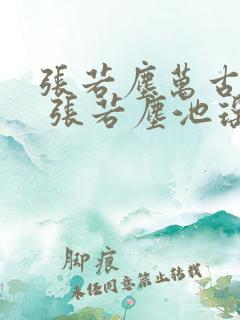 張若塵萬古
張若塵池
脚痕
未经同意禁止转载